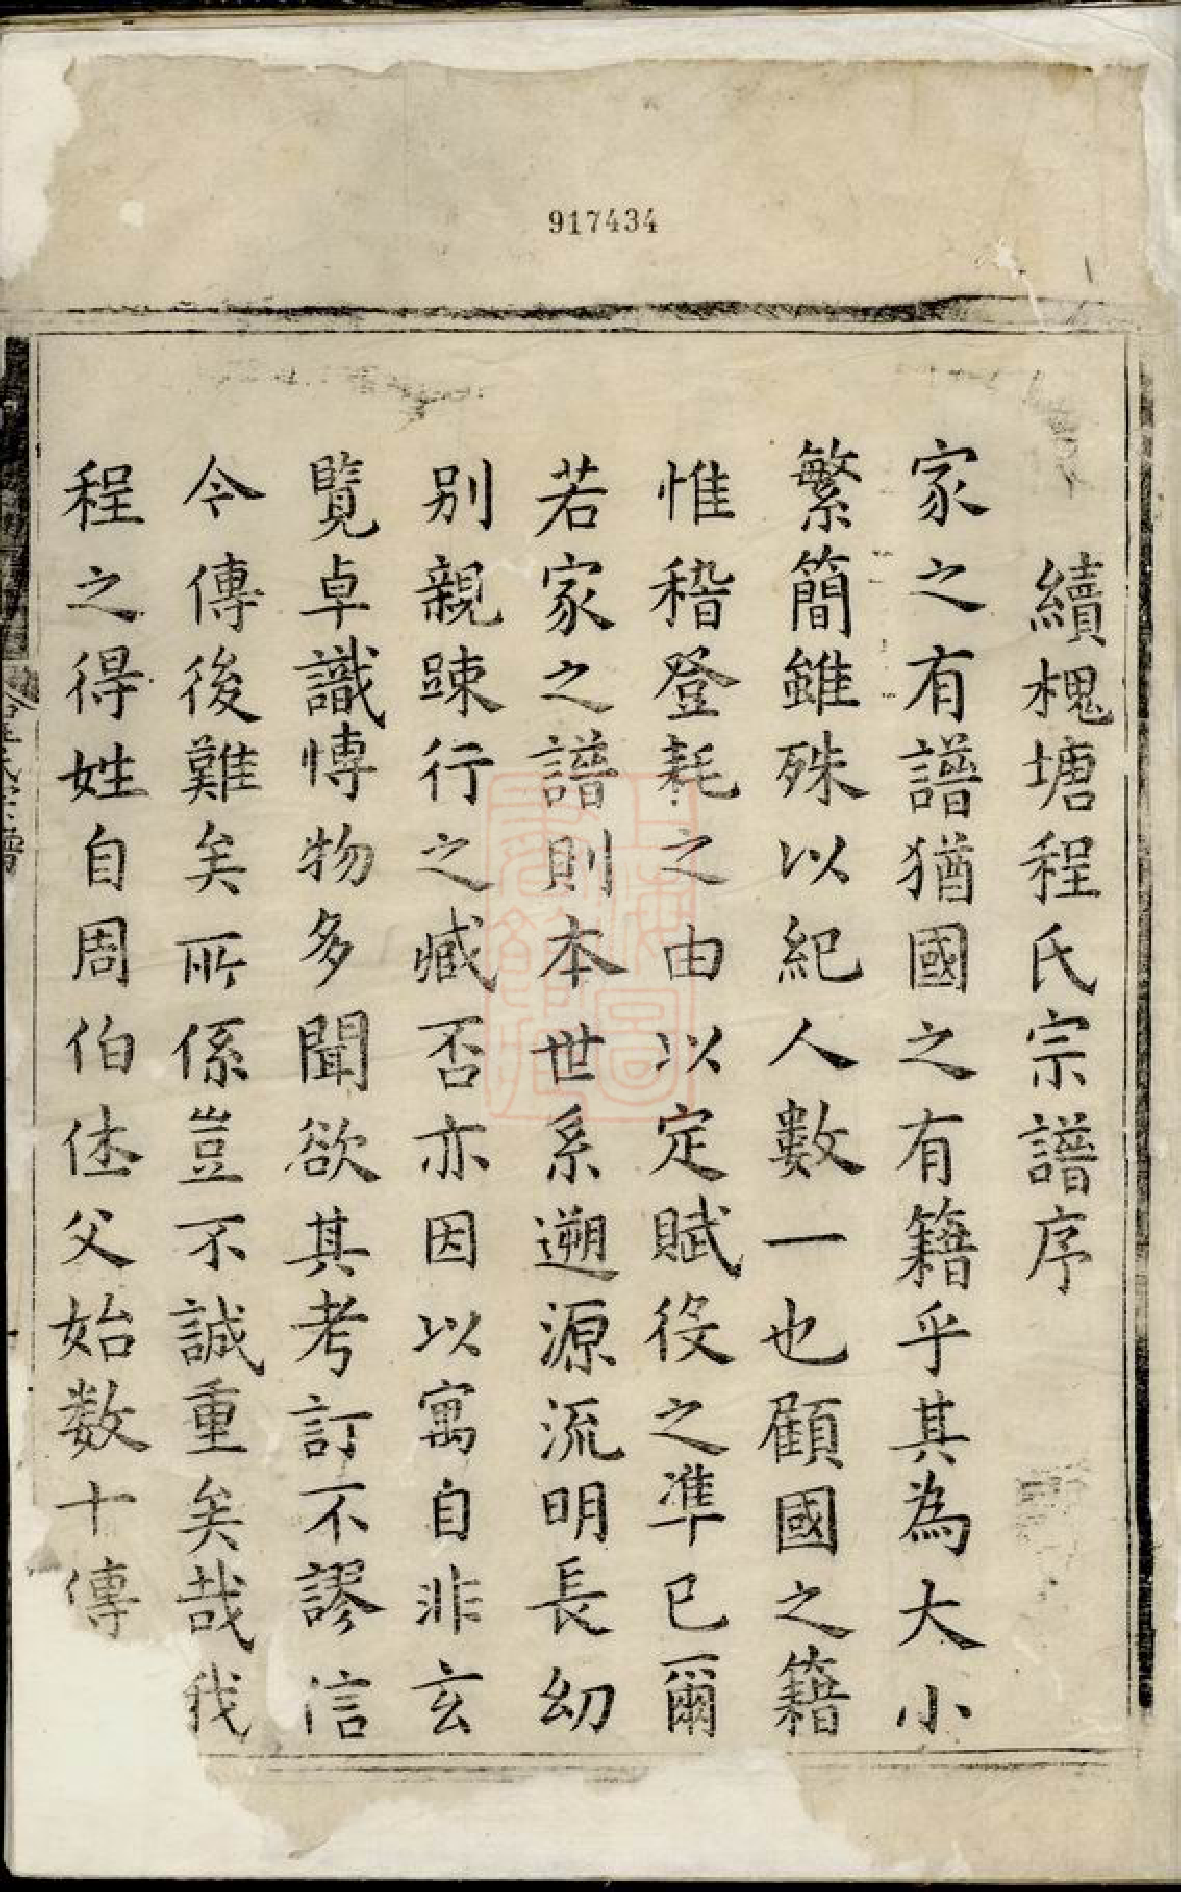 917434
續槐塘程氏宗譜序
家之有譜猶國之有籍乎其為大小
繁簡雖殊以紀人數一也顧國之籍
惟稽登耗之由以定賦役之準已爾
若家之譜則本世系遡源流明長幼
别親踈行之臧否亦因以寓自非玄
覽卓識愽物多聞欲其考訂不謬信
今傳後難矣所係豈不誠重矣哉我
程之得姓自周伯休父始数十傳